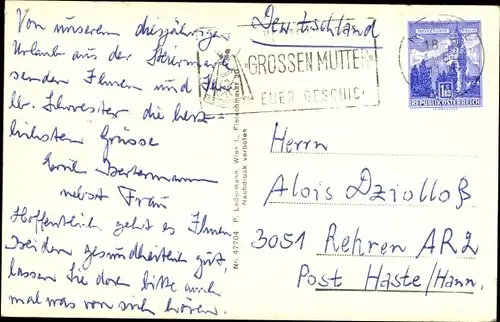 Von unserem diesjährigen
Urlaub aus der Steiermark
senden Ihnen und
Schwester die herz-
lichsten Grüsse
nebst Frau
Hoffentlich geht es Ihnen
beiden gesundheitlich gut
lassen Sie doch bitte auch
mal was von sich hören.
Deutschland
GROSSEN MUTTER
EUER GESCHIC
REPUBLIK ÖSTERREICH
18
Nr. 47704 P. Ledermann, Wien I., Fleischmarkt 20
Nachdruck verboten
Herrn
Alois Dziolloß
3051 Rehren AR2
Post Haste/Hann.